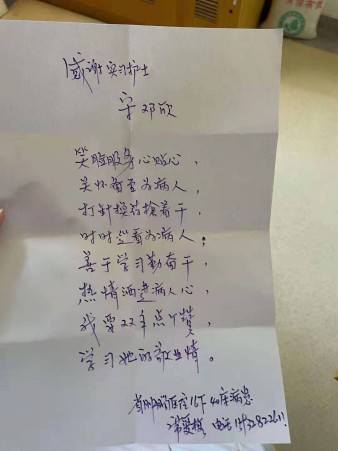 感谢实习护士
宋邓欣
笑脸服务心贴心，
关怀备至为病人，
打针换药抢着干，
时时处看为病人；
善于学习勤奋干，
热情洒进病人心，
我要双手点个赞，
学习她的敬业情。
省肿瘤医院 下 40床病患
电话